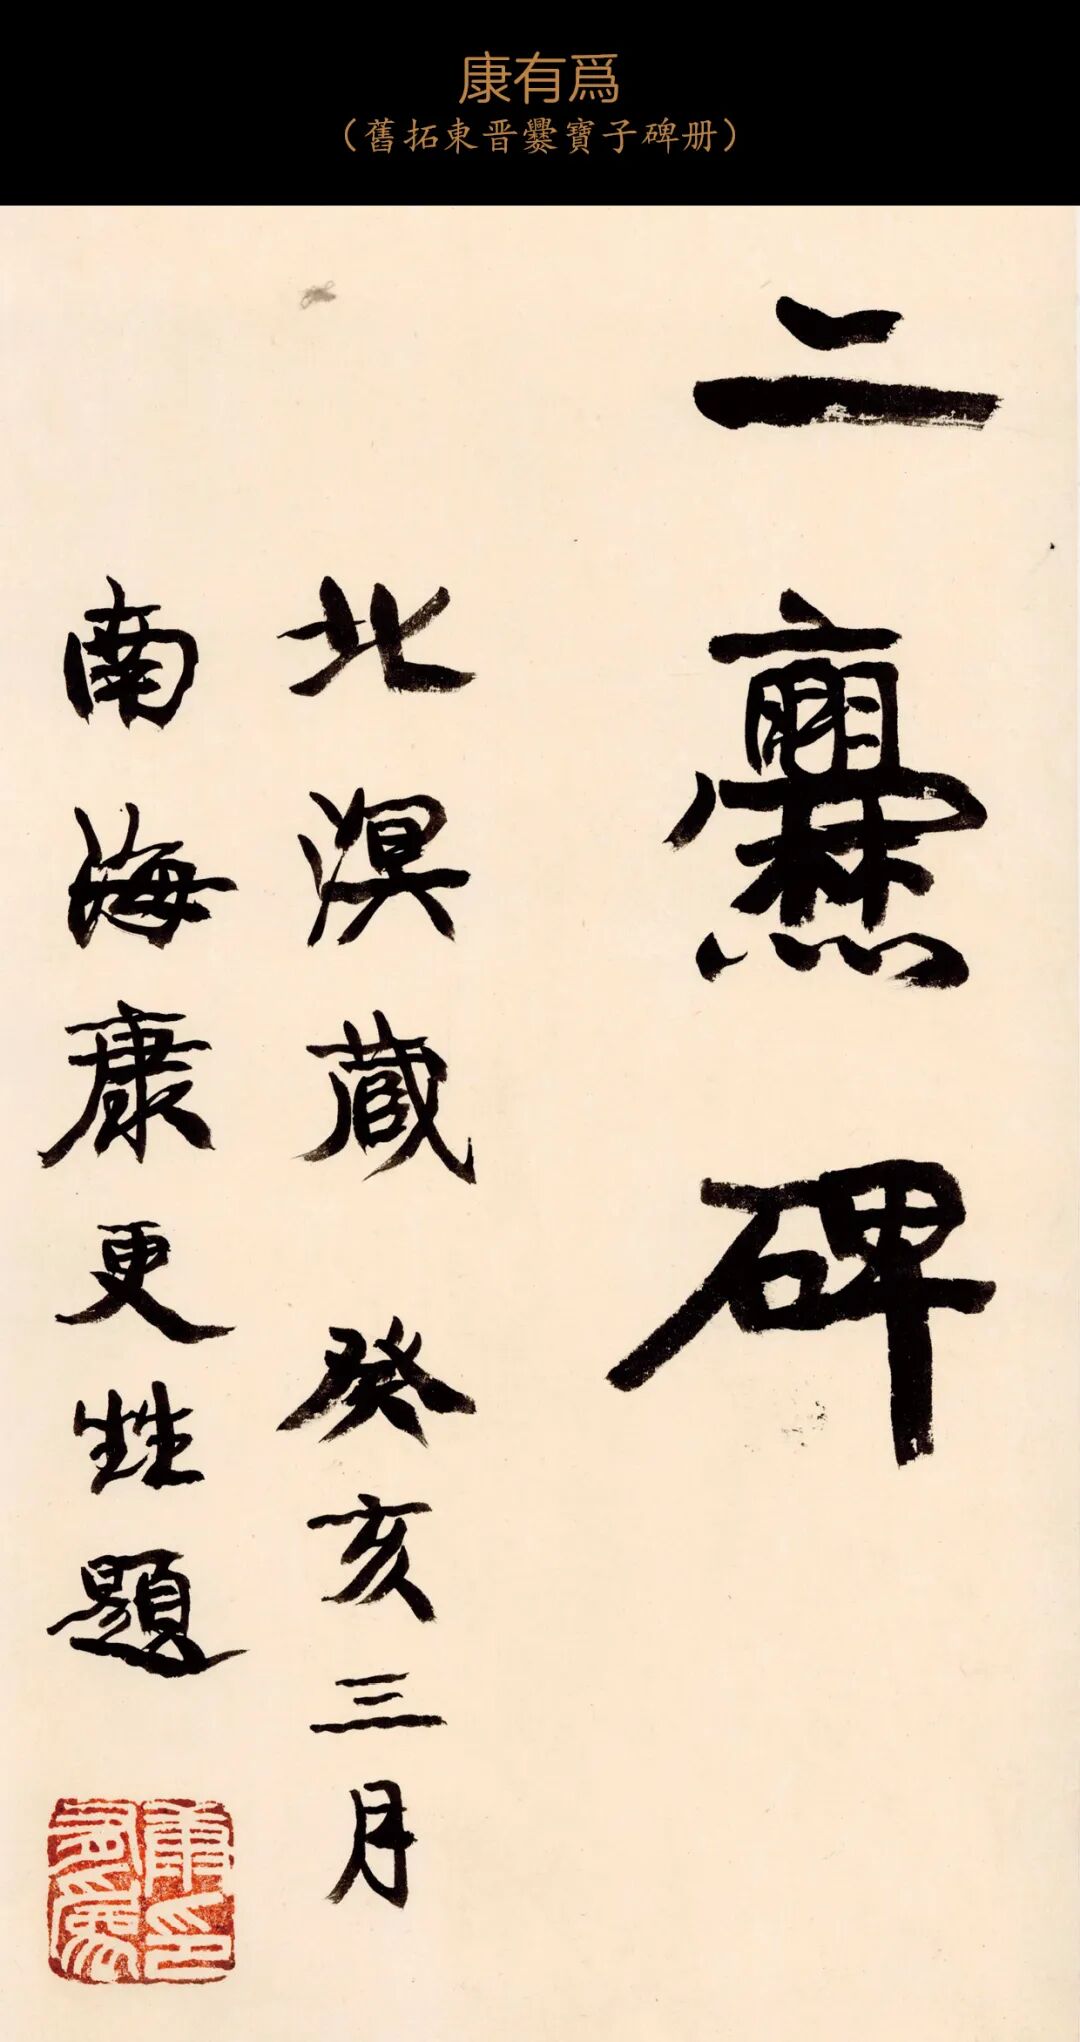 康有爲
（舊拓東晋爨寶子碑册）
二爨碑
北溟藏 癸亥三月
南海康更甡題
康有爲印